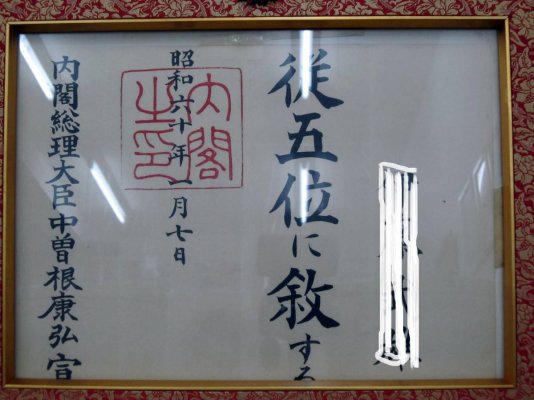 従五位に叙する
昭和六十年一月七日
内閣総理大臣中曽根康弘宣
内閣之印